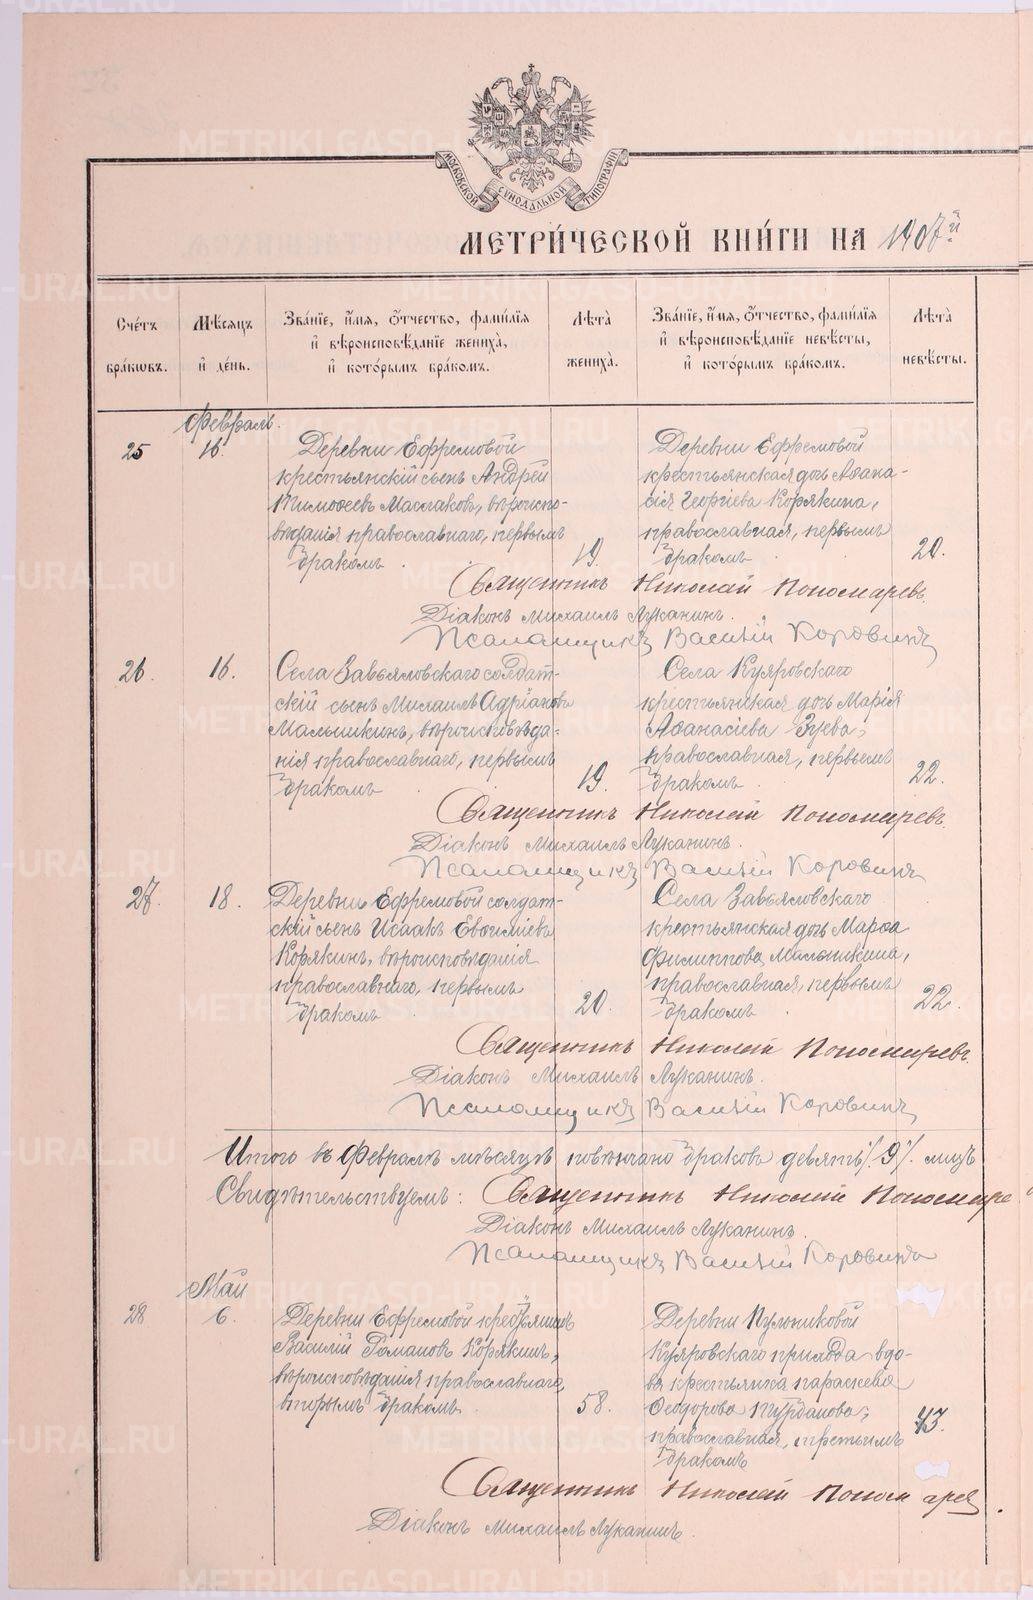 МОСКОВСКОЙ СѴНОДАЛЬНОЙ ТИПОГРАФІИ
МЕТРИ́ЧЕСКОЙ КНИ́ГИ НА 1907й
Сче́тъ бра́кѡвъ.
Мѣ́сѧцъ и҆ де́нь.
Зва́нїе, и҆́мѧ, ѻ҆́тчество, фами́лїѧ и҆ вѣроисповѣ́данїе жениха̀, и҆ кото́рымъ бра́комъ.
Лѣ́та жениха̀.
Зва́нїе, и҆́мѧ, ѻ҆́тчество, фами́лїѧ и҆ вѣроисповѣ́данїе невѣ́сты, и҆ кото́рымъ бра́комъ.
Лѣ́та невѣ́сты.
Февраль.
25
16.
Деревни Ефремовой
крестьянскій сынъ Андрей
Тимоѳеевъ Маслаковъ, вѣроиспо-
вѣданія православнаго, первымъ
бракомъ
19.
Деревни Ефремовой
крестьянская дочь Аѳана-
сія Георгіева Корякина,
православная, первымъ
бракомъ
20.
Священникъ Николай Пономаревъ
Діаконъ Михаилъ Луканинъ.
Псаломщикъ Василій Коровинъ
26.
16.
Села Завьяловскаго солдат-
скій сынъ Михаилъ Адріановъ
Мальшкинъ, вѣроисповѣда-
нія православнаго, первымъ
бракомъ
19.
Села Куяровскаго
крестьянская дочь Марія
Аѳанасіева Зуева,
православная, первымъ
бракомъ
22.
Священникъ Николай Пономаревъ.
Діаконъ Михаилъ Луканинъ.
Псаломщикъ Василій Коровинъ
27.
18.
Деревни Ефремовой солдат-
скій сынъ Исаакъ Евѳиміевъ
Корякинъ, вѣроисповѣданія
православнаго, первымъ
бракомъ
20.
Села Завьяловскаго
крестьянская дочь Марѳа
Филиппова Мальшкина,
православная, первымъ
бракомъ
22.
Священникъ Николай Пономаревъ.
Діаконъ Михаилъ Луканинъ.
Псаломщикъ Василій Коровинъ
Итого въ Февралѣ мѣсяцѣ повѣнчано браковъ девять /9/. лицъ
Свидѣтельствуемъ: Священникъ Николай Пономаре
Діаконъ Михаилъ Луканинъ.
Псаломщикъ Василій Коровинъ
Май
28
6.
Деревни Ефремовой крестьянинъ
Василій Романовъ Корякинъ,
вѣроисповѣданія православнаго,
вторымъ бракомъ.
58.
Деревни
Куяровскаго прихода вдо-
ва крестьянка Параскева
Ѳеодорова Турданова,
православная, третьимъ
бракомъ
43.
Священникъ Николай Пономарев
Діаконъ Михаилъ Луканинъ.
METRIKI.GASO-URAL.RU